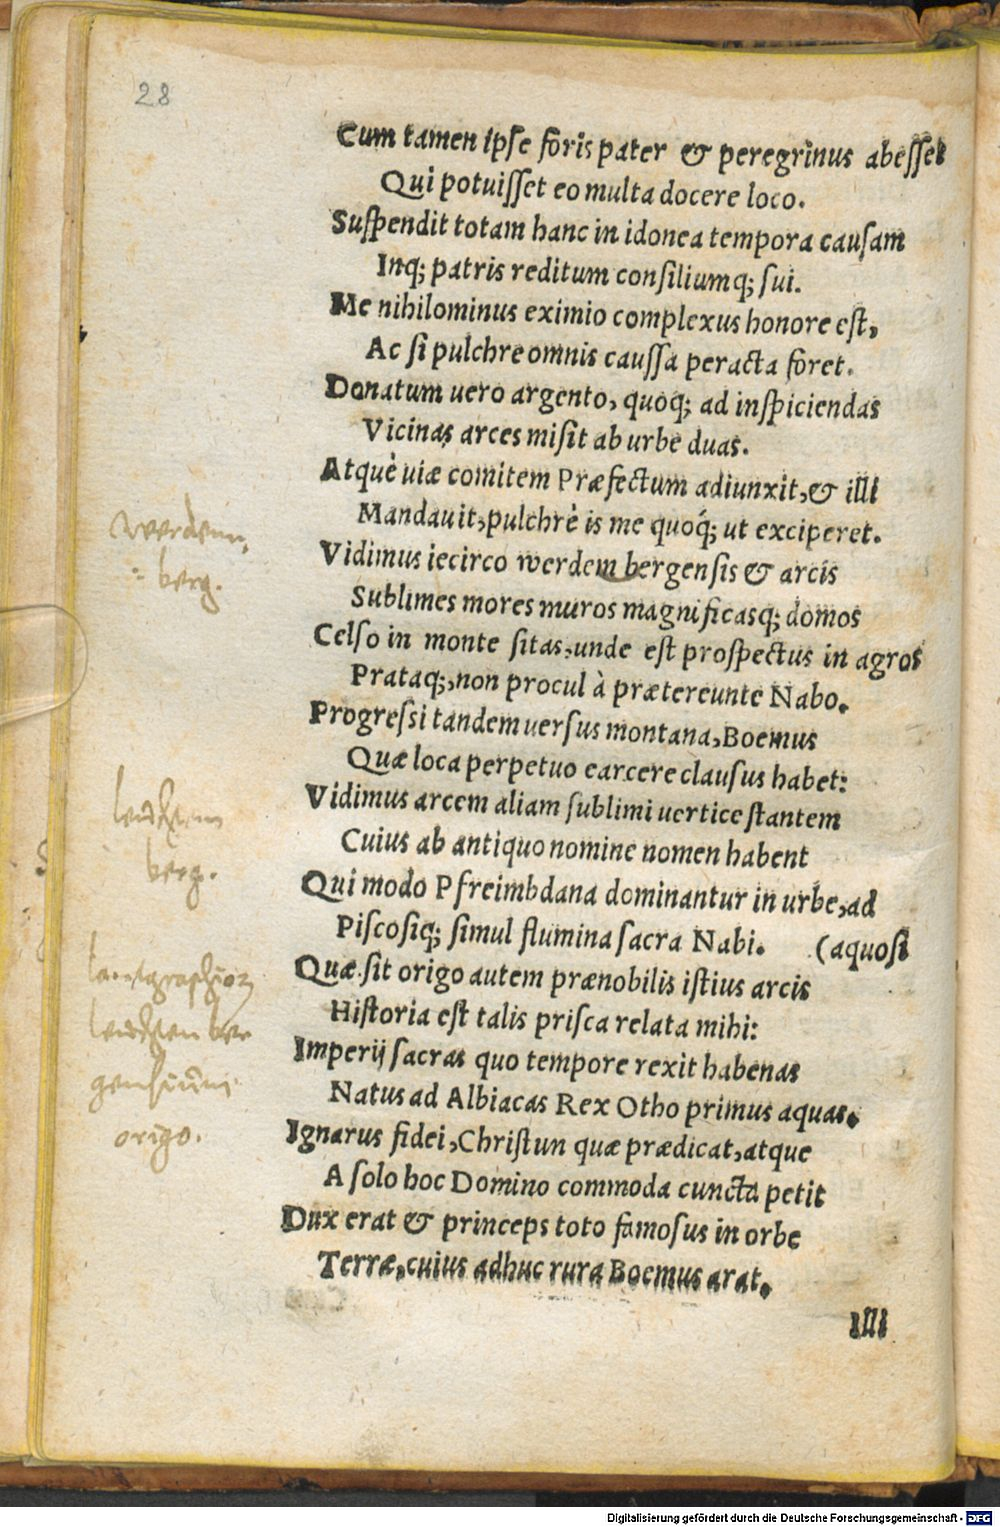 28
Cum tamen ipse foris pater & peregrinus abesset
Qui potuisset eo multa docere loco.
Suspendit totam hanc in idonea tempora causam
Inq; patris reditum consiliumq; sui.
Me nihilominus eximio complexus honore est,
Ac si pulchre omnis caussa peracta foret.
Donatum uero argento, quoq; ad inspiciendas
Vicinas arces misit ab urbe duas.
Atquè uiæ comitem Præfectum adiunxit, & illi
Mandauit, pulchrè is me quoq́; ut exciperet.
Vidimus iccirco werdem bergensis & arcis
Sublimes mores muros magnificasq; domos
Celso in monte sitas, unde est prospectus in agros
Prataq;, non procul à prætereunte Nabo.
Progressi tandem uersus montana, Boemus
Quæ loca perpetuo carcere clausus habet:
Vidimus arcem aliam sublimi uertice stantem
Cuius ab antiquo nomine nomen habent
Qui modo Pfreimbdana dominantur in urbe, ad
Piscosiq; simul flumina sacra Nabi. (aquosi
Quæ sit origo autem prænobilis istius arcis
Historia est talis prisca relata mihi:
Imperij sacras quo tempore rexit habenas
Natus ad Albiacas Rex Otho primus aquas.
Ignarus fidei, Christun quæ prædicat, atque
A solo hoc Domino commoda cuncta petit
Dux erat & princeps toto famosus in orbe
Terræ, cuius adhuc rura Boemus arat.
Illi
werdenn,
berg.
berg.
origo.
Digitalisierung gefördert durch die Deutsche Forschungsgemeinschaft - DFG